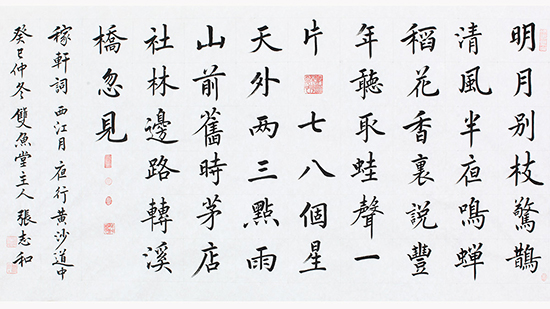 明月别枝驚鵲
清風半夜鳴蝉
稻花香裏説豐
年聽取蛙聲一
片 七八個星
天外两三點雨
山前舊時茅店
社林邊路轉溪
橋忽見
稼軒詞 西江月 夜行黄沙道中
癸巳仲冬雙魚堂主人張志和